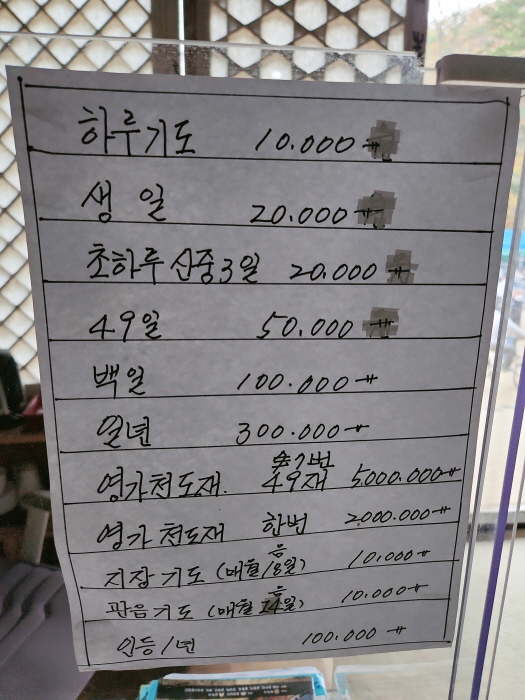 하루기도 10.000
생일 20.000
초하루 산중3일 20.000
49일 50.000
백일 100.000
일년 300.000
영가천도재. 49재 5.000.000
영가 천도재 한번 2.000.000
지장기도 (매월 음 18일) 10.000
관음기도 (매월 음 24일) 10.000
인등/년 100.000